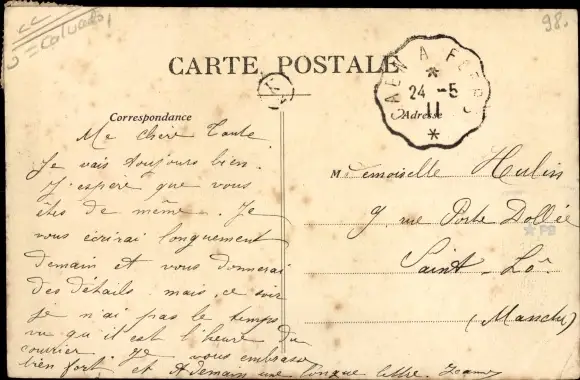 calvados
98.
CARTE POSTALE
CAEN A FOR
24 -5
11
Correspondance
Adresse
Ma chère Tante
Je vais toujours bien.
J'espère que vous
êtes de même. Je
vous écrirai longuement
demain et vous donnerai
des détails mais ce soir
je n'ai pas le temps
vu qu'il est l'heure du
courier. Je vous embrasse
bien fort et à demain une longue lettre. Jeanne
Mademoiselle Hulin
9, rue Porte Dollée
Saint-Lô.
(Manche)
PB